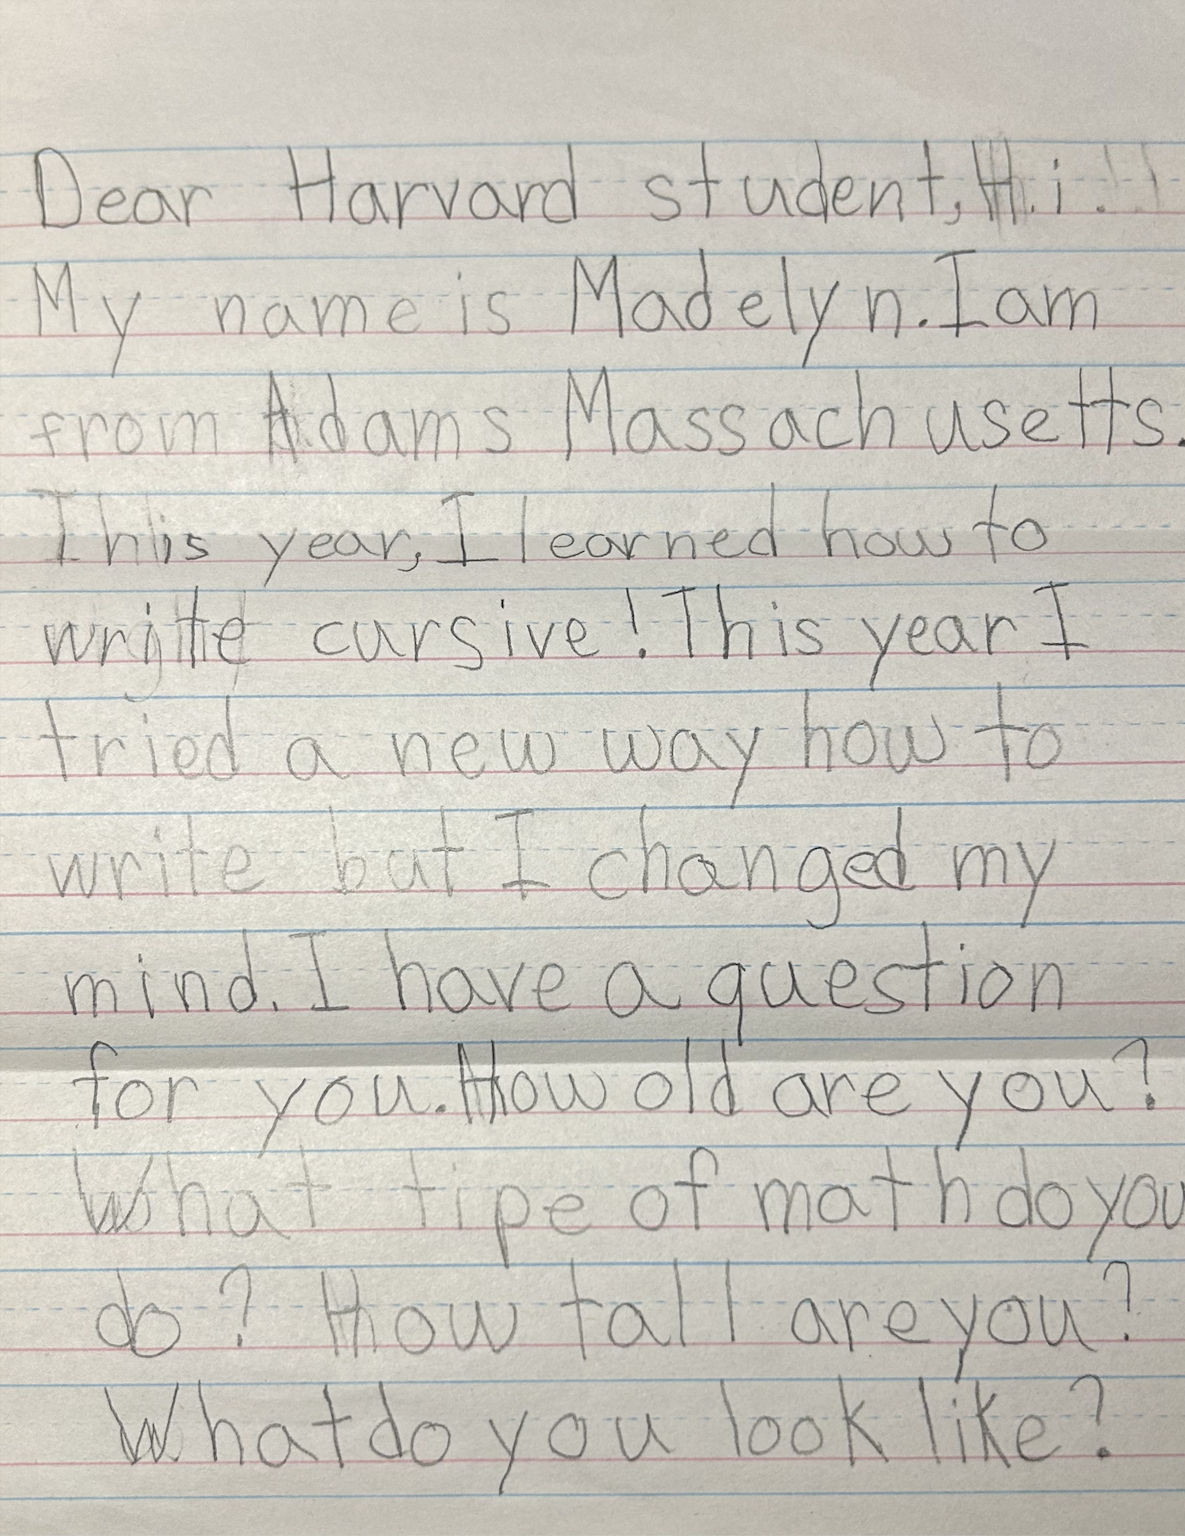 Dear Harvard student, Hi!
My name is Madelyn. I am
from Adams Massachusetts.
This year, I learned how to
write cursive! This year I
tried a new way how to
write but I changed my
mind. I have a question
for you. How old are you?
What tipe of math do you
do? How tall are you?
What do you look like?